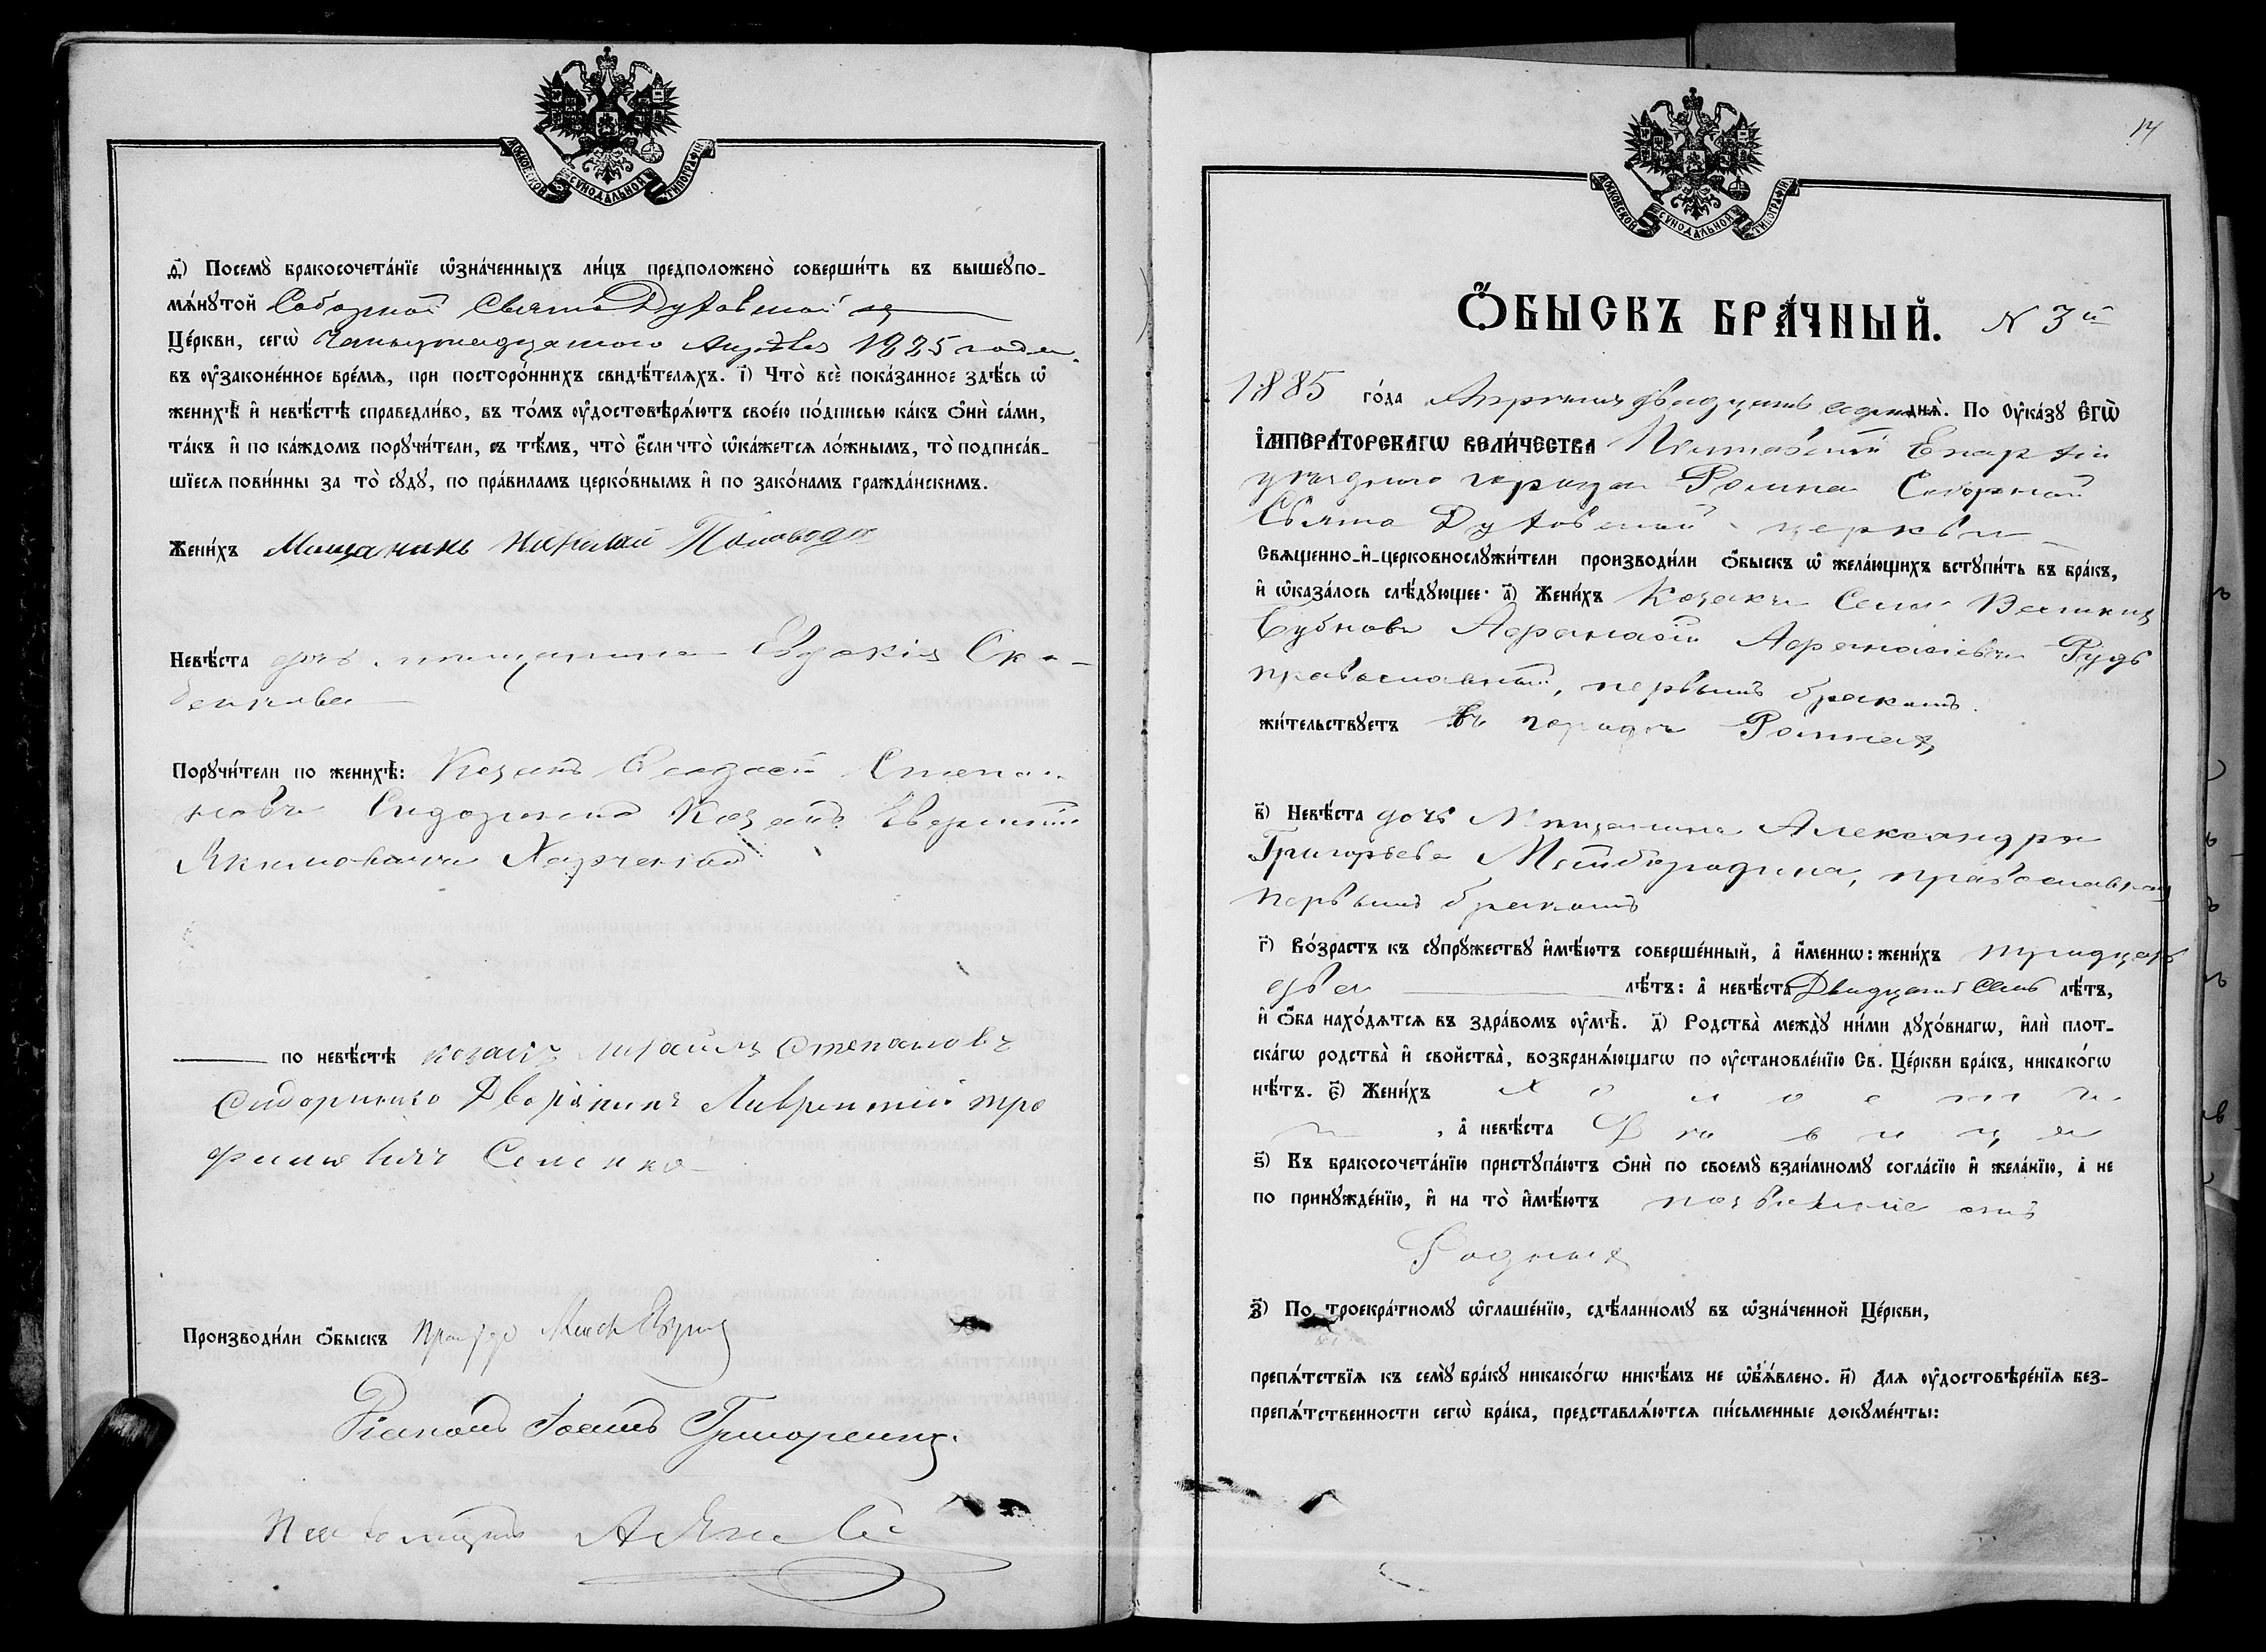 МОСКОВСКОЙ СѴНОДАЛЬНОЙ ТИПОГРАФІИ
д҃) Посемꙋ̀ бракосочета́нїе ѡ҆зна́ченныхъ ли́цъ предположено̀ соверши́ть въ вышеꙋпо-
мѧ́нꙋтой Соборной Свято Духовской
Це́ркви, сегѡ̀ Четырнадцатого Апрѣля 1885 года.
въ оу҆законе́нное вре́мѧ, при посторо́ннихъ свидѣ́телѧхъ. і҃) Что̀ всѐ пока́занное здѣ́сь ѡ҆
женихѣ̀ и҆ невѣ́стѣ справедли́во, въ то́мъ оу҆достовѣрѧ́ютъ свое́ю по́дписью ка́къ ѻ҆нѝ са́ми,
та́къ и҆ по ка́ждомъ порꙋчи́тели, съ тѣ́мъ, что̀ є҆́сли что̀ ѡ҆ка́жется ло́жнымъ, то̀ подписа́в-
шїесѧ пови́нны за то̀ сꙋдꙋ̀, по пра́виламъ церко́внымъ и҆ по зако́намъ гражда́нскимъ.
Жени́хъ Мищанинъ Николай Половода
Невѣ́ста дочь мищанина Евдокія
Порꙋчи́тели по женихѣ̀: Козакъ Степа-
новъ Сидоренко Козакъ
Якимовичъ Харченко
по невѣ́стѣ козакъ Михаилъ Степановъ
Сидоренко Дворянинъ Лаврентій Тро
фимовичъ Семенко
Производи́ли ѻ҆́быскъ
Діаконъ Іоаннъ Григоренко.
Псаломщикъ
14
МОСКОВСКОЙ СѴНОДАЛЬНОЙ ТИПОГРАФІИ
Ѻ҆́БЫСКЪ БРА́ЧНЫЙ. N 3й
1885 го́да Апрѣля двадцать одного днѧ̀. По Оу҆ка́зꙋ Є҆ГѠ̀
І҆МПЕРА́ТОРСКАГѠ ВЕЛИ́ЧЕСТВА Полтавской Епархіи
уѣзднаго города Ромна Соборной
Свято Духовской церкви
Свѧщенно-и҆-церковнослꙋжи́тели производи́ли ѻ҆́быскъ ѡ҆ жела́ющихъ встꙋпи́ть въ бра́къ,
и҆ ѡ҆каза́лось слѣ́дꙋющее: а҃) Жени́хъ Козакъ Села Великихъ
Бубновъ Афанасій Афанасіевъ Рудь
православный, первымъ бракомъ.
жи́тельствꙋетъ въ городѣ Ромнахъ
в҃) Невѣ́ста дочь Мищанина Александра
Григорьева Майбородина, православная
первымъ бракомъ
г҃) Во́зрастъ къ сꙋпрꙋ́жествꙋ и҆мѣ́ютъ соверше́нный, а҆ и҆́меннѡ: жени́хъ тридцать
два лѣ́тъ: а҆ невѣ́ста Двадцать Семь лѣ́тъ,
и҆ ѻ҆́ба нахо́дѧтсѧ въ здра́вомъ оу҆мѣ̀. д҃) Родства̀ междꙋ̀ ни́ми дꙋхо́внагѡ, и҆лѝ плот-
ска́гѡ родства̀ и҆ свойства̀, возбранѧ́ющагѡ по оу҆становле́нїю Св. Це́ркви бра́къ, никако́гѡ
нѣ́тъ. є҃) Жени́хъ Холостъ
, а҆ невѣ́ста Дѣвица
ѕ҃) Къ бракосочета́нїю пристꙋпа́ютъ ѻ҆нѝ по своемꙋ̀ взаи́мномꙋ согла́сїю и҆ жела́нїю, а҆ не
по принꙋжде́нїю, и҆ на то̀ и҆мѣ́ютъ позволеніе отъ
Родныхъ
з҃) По троекра́тномꙋ ѡ҆глаше́нїю, сдѣ́ланномꙋ въ ѡ҆зна́ченной Це́ркви,
препѧ́тствїѧ къ семꙋ̀ бра́кꙋ никако́гѡ никѣ́мъ не ѡ҆б̾ѧ́влено. и҃) Длѧ оу҆достовѣре́нїѧ без-
препѧ́тственности сегѡ̀ бра́ка, представлѧ́ютсѧ пи́сьменные докꙋме́нты: